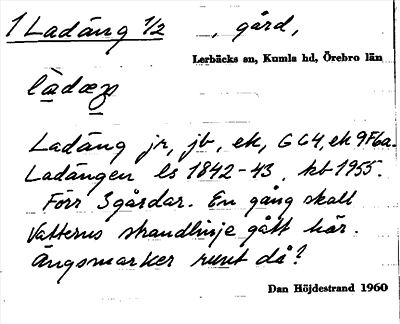 1 Ladäng 1/2 , gård,
Lerbäcks sn, Kumla hd, Örebro län
Ladäng jr, jb, ek, G64, ek 9F6a.
Ladängen ls 1842-43, kt 1955.
Förr 3 gårdar. En gång skall
Vätterns strandlinje gått här.
Ängsmarker runt då?
Dan Höjdestrand 1960